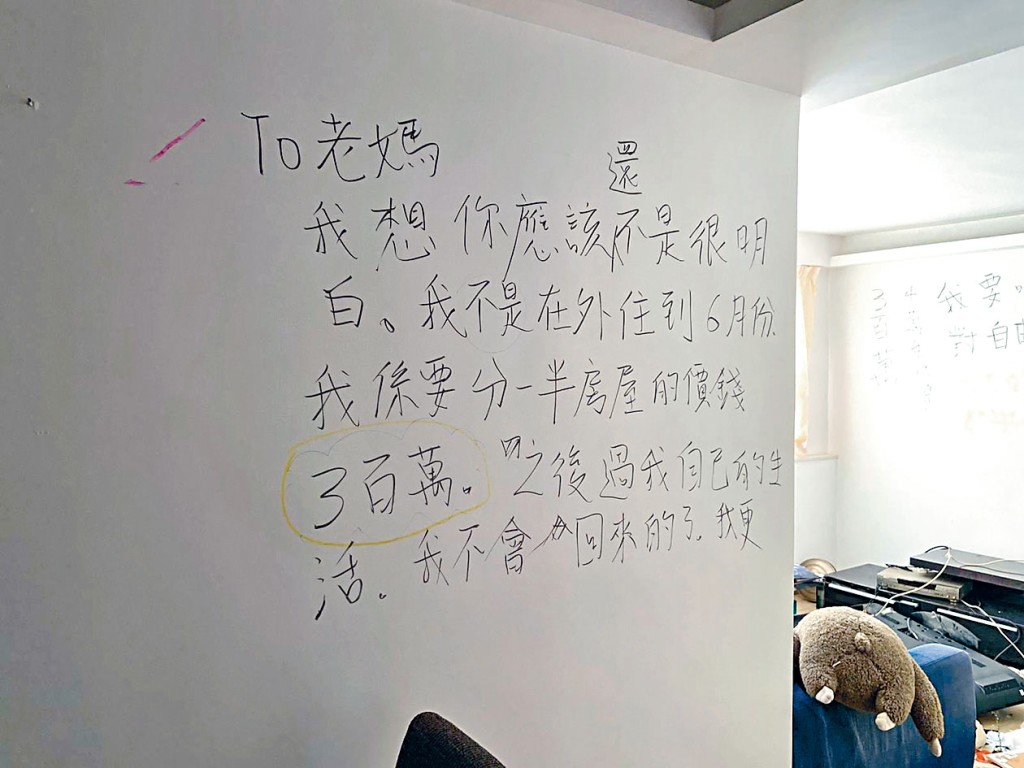 To老媽
還
我想你應該不是很明
白。我不是在外住到6月份.
我係要分一半房屋的價錢
3百萬。之後過我自己的生
活。我不會回來的了.我更
我要。
3百萬
對自